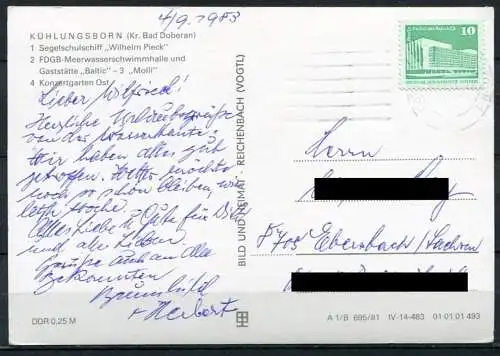 4/9. 1983
KÜHLUNGSBORN (Kr. Bad Doberan)
1 Segelschulschiff „Wilhelm Pieck“
2 FDGB-Meerwasserschwimmhalle und
Gaststätte „Baltic“ – 3 „Molli“
4 Konzertgarten Ost
Lieber Wilfried!
Herzliche Urlaubsgrüße
von der Wasserkante.
Wir haben alles gut
getroffen. Wetter möchte
noch so schön bleiben, wie
letzte Woche.
Alles Liebe + Gute für Dich
und alle Lieben
Grüße auch an alle
Bekannten
Brunhild
+ Herbert
DDR 0,25 M
BILD UND HEIMAT REICHENBACH (VOGTL)
10
Herrn
8705 Ebersbach/Sachsen
A 1/B 695/81 IV-14-483 01 01 01 493